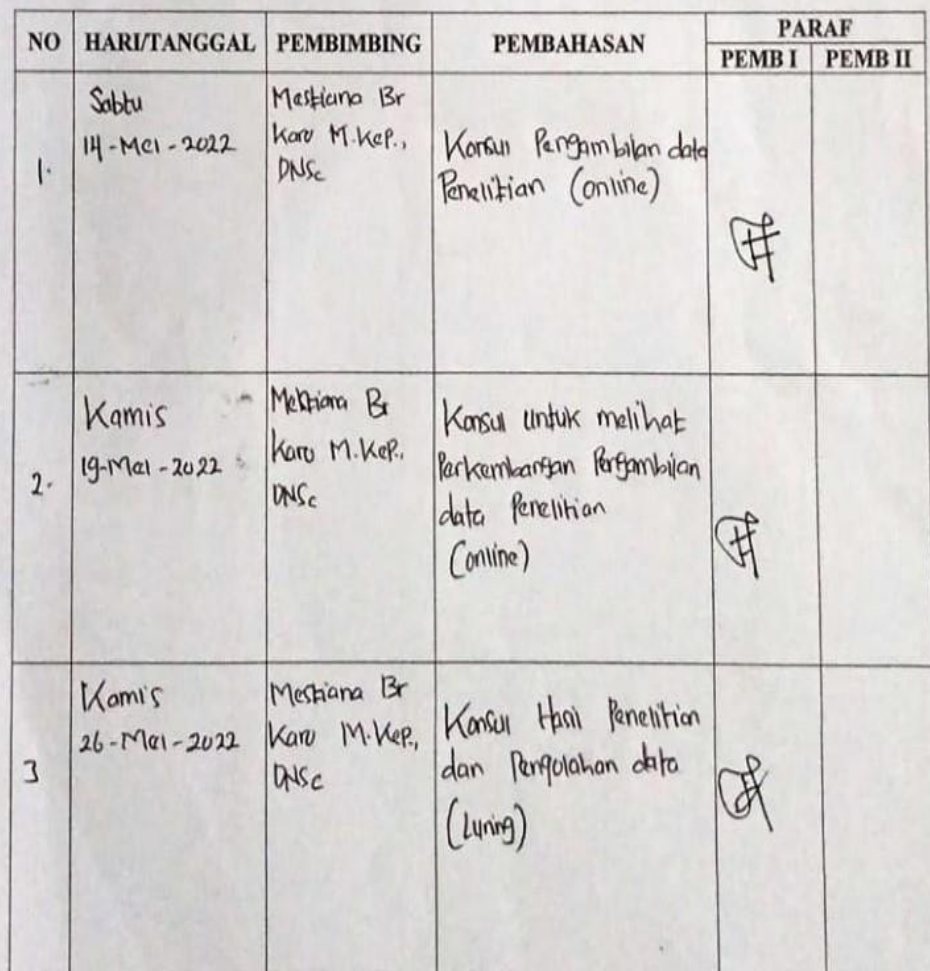 NO HARI/TANGGAL PEMBIMBING PEMBAHASAN PARAF
PEMB I PEMB II
1.
Sabtu
14-Mei-2022
Mestiana Br
Karo M.Kep.,
DNSc
Konsul Pengambilan data
Penelitian (online)
2.
Kamis
19-Mei-2022
Mestiana Br
Karo M.Kep.,
DNSc
Konsul untuk melihat
Perkembangan Pengambilan
data Penelitian
(online)
3
Kamis
26-Mei-2022
Mestiana Br
Karo M.Kep.,
DNSc
Konsul Hasil Penelitian
dan Pengolahan data
(Luring)